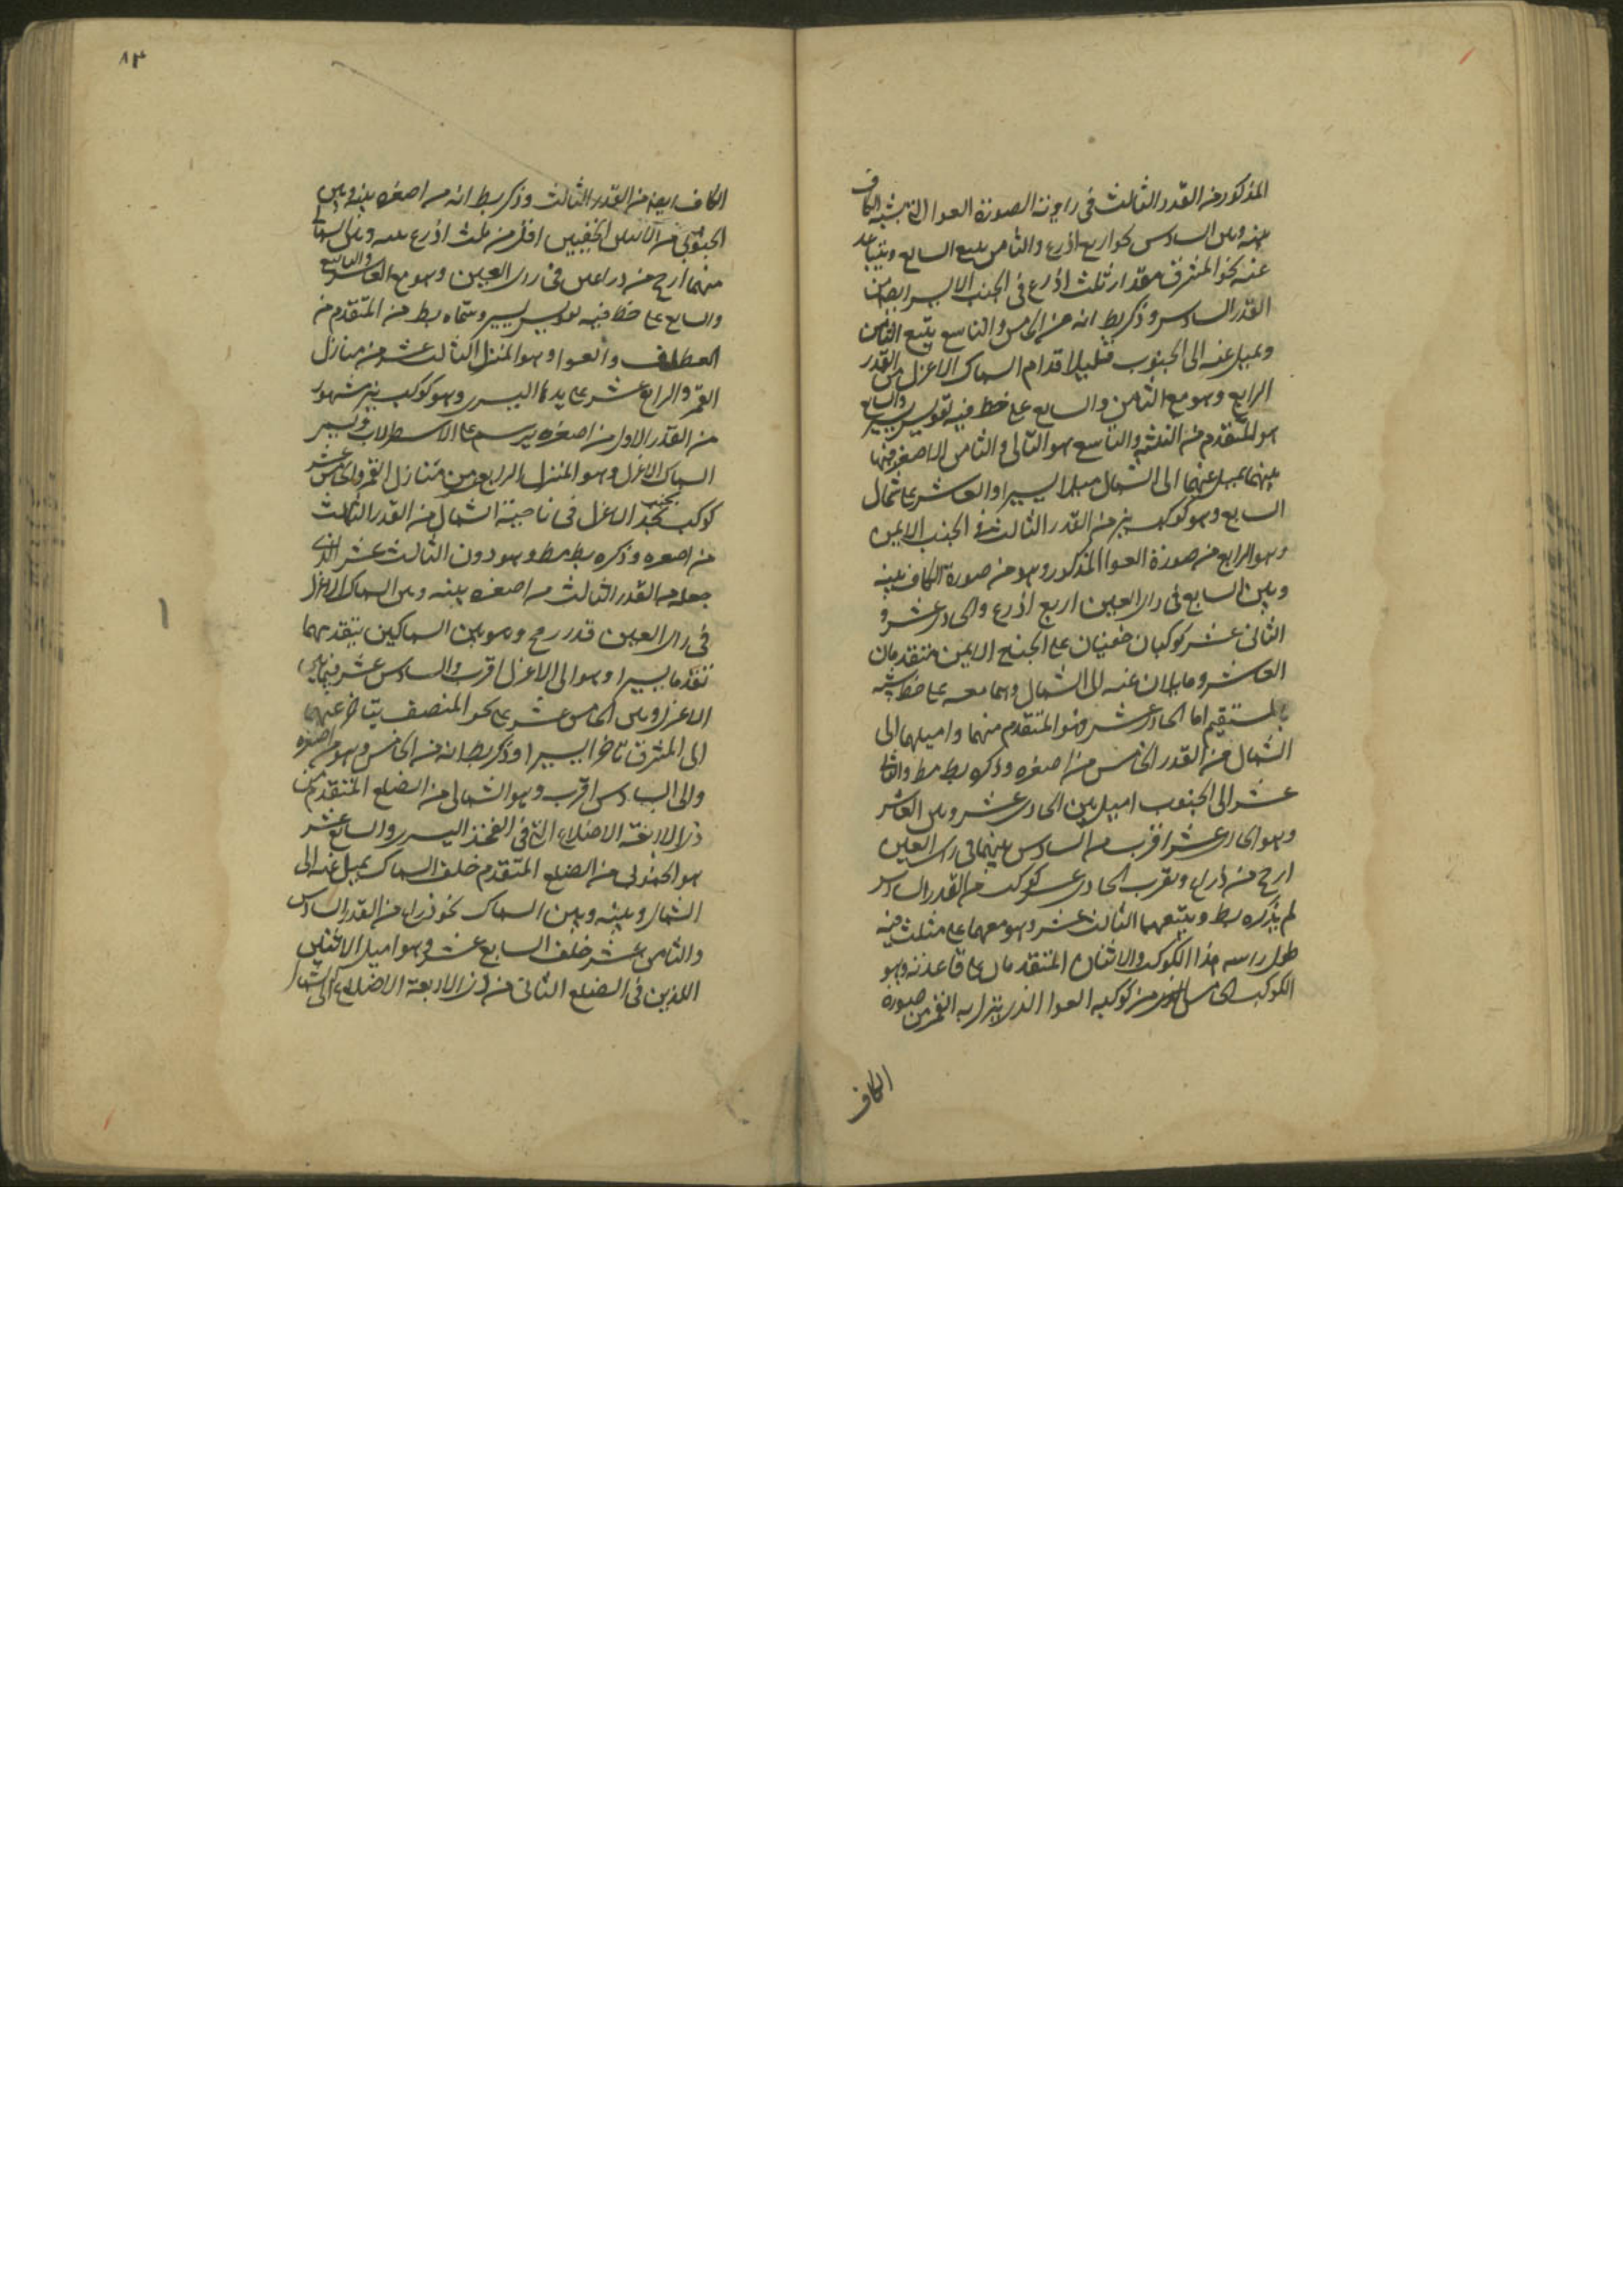 المذكور من القدر الثالث في زاوية الصورة العوا التي يشبه الكاف
بينه وبين السادس نحو اربع اذرع والثامن يتبع السابع ويتباعد
عنه نحو المشرق مقدار ثلث اذرع في الجنب الايسر ايضا من
القدر السادس وذكر بط انه من الخامس والتاسع يتبع الثامن
ويميل عنه الى الجنوب قليلا قدام السماك الاعزل من القدر
الرابع وهو مع الثامن والسابع على خط فيه تقويس يسير والسابع
هو المتقدم من الثلثة والتاسع هو التالي والثامن الاصغر فيما
بينهما يميل عنهما الى الشمال ميلا يسيرا والعاشر على شمال
السابع وهو كوكب نير من القدر الثالث في الجنب الايمن
وهو الرابع من صورة العوا المذكور وهو من صورة الكاف بينه
وبين السابع في راى العين اربع اذرع والحادى عشر و
الثانى عشر كوكبان خفيان على الجنح الايمن متقدمان
العاشر ومايلان عنه الى الشمال وهما معه على خط يشبه
بالمستقيم اما الحادى عشر فهو المتقدم منهما واميلهما الى
الشمال من القدر الخامس من اصغره وذكره بط مط والثانى
عشر الى الجنوب اميل بين الحادى عشر وبين العاشر
وهو الى الحادى عشر اقرب من السادس بينهما في راى العين
ارجح من ذراع وبقرب الحادى عشر كوكب من القدر السادس
لم يذكره بط ويتبعهما الثالث عشر وهو معهما على مثلث فيه
طول راسه هذا الكوكب والاثنان المتقدمان على قاعدته وهو
الكوكب الخامس من كوكبه العوا الذى ينزل به القمر من صورة
الكاف
٨٣
الكاف ايضا من القدر الثالث وذكر بط انه من اصغره بينه وبين
الجنوبي من الاثنين الخفيين اقل من ثلث اذرع بينه وبين الشمالى
منهما ارجح من ذراعين في راى العين وهو مع العاشر والتاسع
والسابع على خط فيه تقويس يسير وسماه بط من المتقدم من
القطاف والعوا وهو المنزل الثالث عشر من منازل
القمر والرابع عشر على يدها اليسرى وهو كوكب نير مشهور
من القدر الاول من اصغره يرسم على الاسطرلاب ويسمى
السماك الاعزل وهو المنزل الرابع عشر من منازل القمر والخامس عشر
كوكب بجنب الاعزل في ناحية الشمال من القدر الثالث
من اصغره وذكره بط مط وهو دون الثالث عشر الذى
جعله من القدر الثالث من اصغره بينه وبين السماك الاعزل
في راى العين قدر رمح وهو بين السماكين يتقدمهما
تقدما يسيرا وهو الى الاعزل اقرب والسادس عشر فيما بين
الاعزل وبين الخامس عشر على نحو المنصف يتاخر عنهما
الى المشرق تاخرا يسيرا وذكر بط انه من الخامس وهو من اصغره
والى السادس اقرب وهو الشمالى من الضلع المتقدم من
ذى الاربعة الاضلاع التي في الفخذ اليسرى والسابع عشر
هو الجنوبى من الضلع المتقدم خلف السماك يميل عنه الى
الشمال وبينه وبين السماك نحو ذراع من القدر السادس
والثامن عشر خلف السابع عشر وهو اميل الاثنين
اللذين في الضلع الثانى من ذى الاربعة الاضلاع الى الشمال